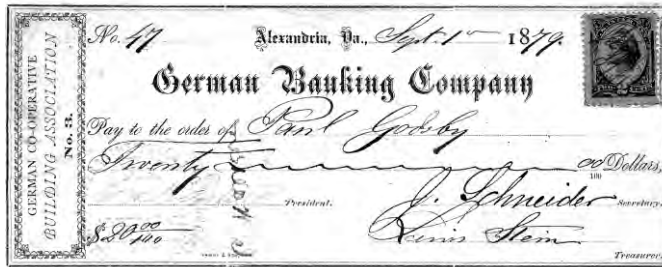 GERMAN CO-OPERATIVE
BUILDING ASSOCIATION
No. 3.
No. 47 Alexandria, Va., Sept. 1st 1879.
German Banking Company
Pay to the order of Paul Godsby
Twenty 00/100 Dollars,
President. J. Schneider Secretary.
$20 00/100 Louis Stein
Treasurer.